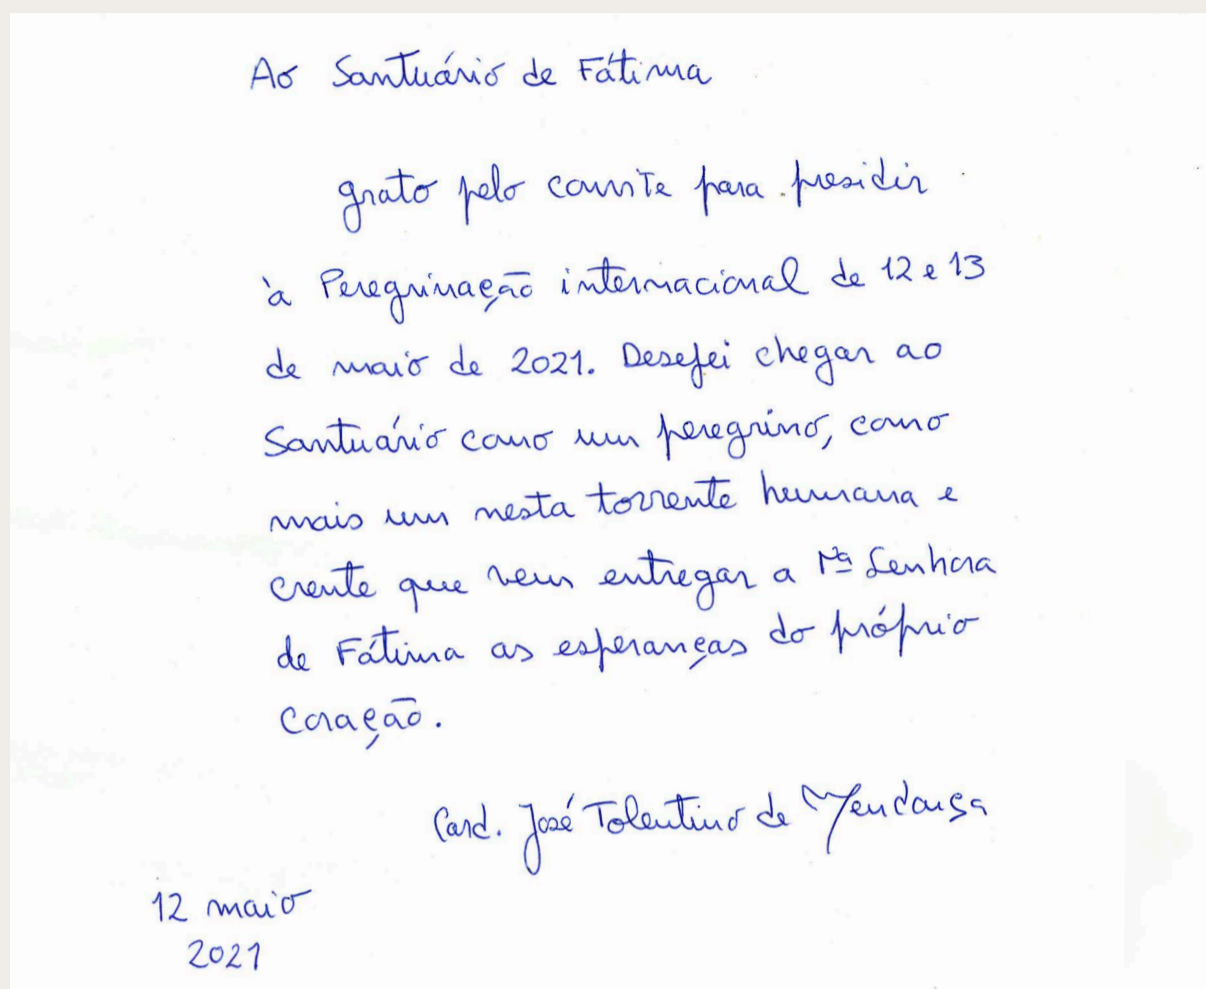 Ao Santuário de Fátima
grato pelo convite para presidir
à Peregrinação internacional de 12 e 13
de maio de 2021. Desejei chegar ao
Santuário como um peregrino, como
mais um nesta torrente humana e
crente que vem entregar a Nª Senhora
de Fátima as esperanças do próprio
coração.
Card. José Tolentino de Mendonça
12 maio
2021